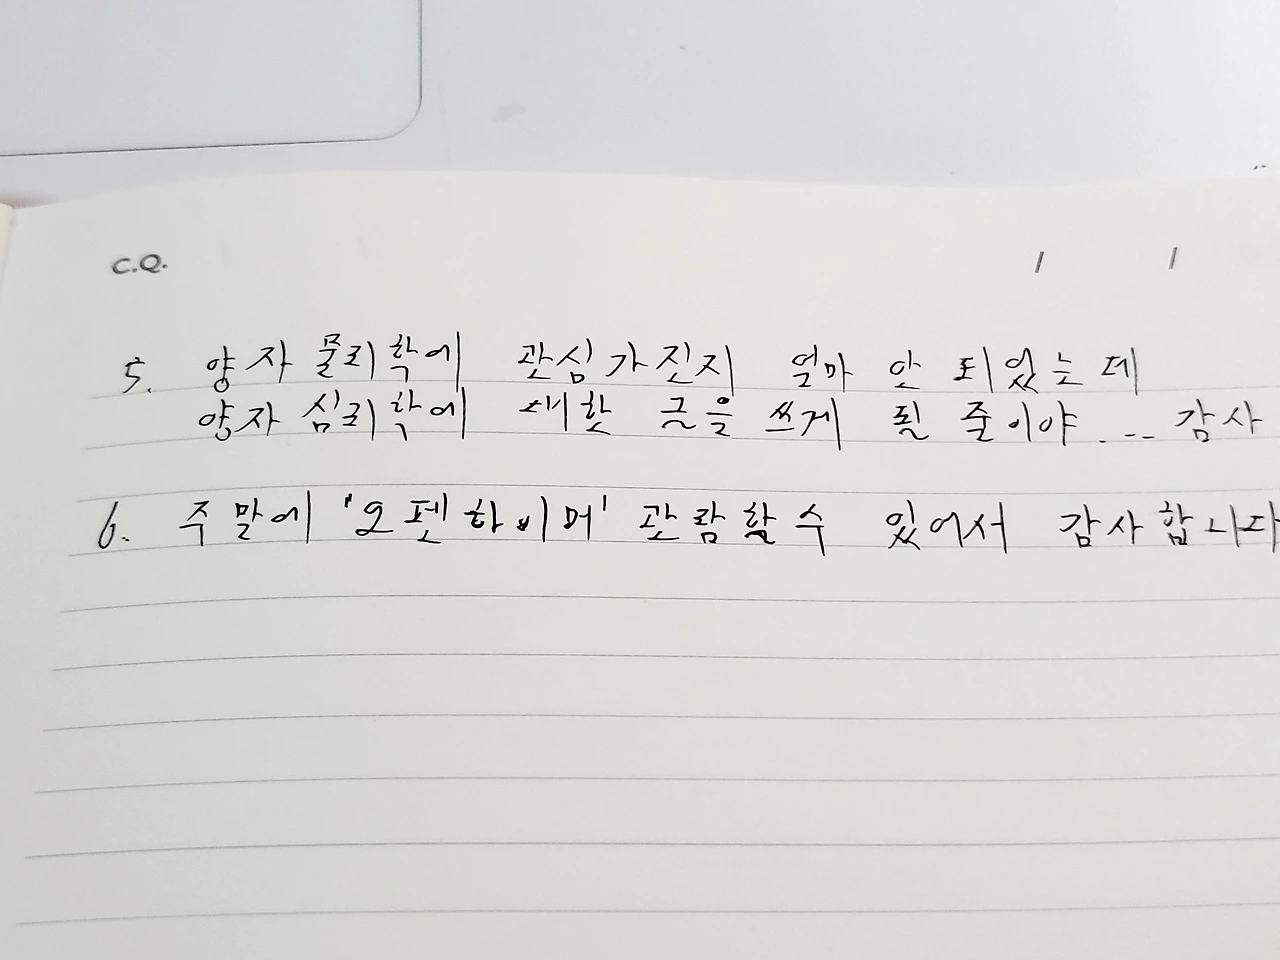 C.Q. / /
5. 양자 물리학에 관심가진지 얼마 안 되있는데
양자 심리학에 대한 글을 쓰게 될 줄이야... 감사
6. 주말에 '오펜하이머' 관람할수 있어서 감사합니다